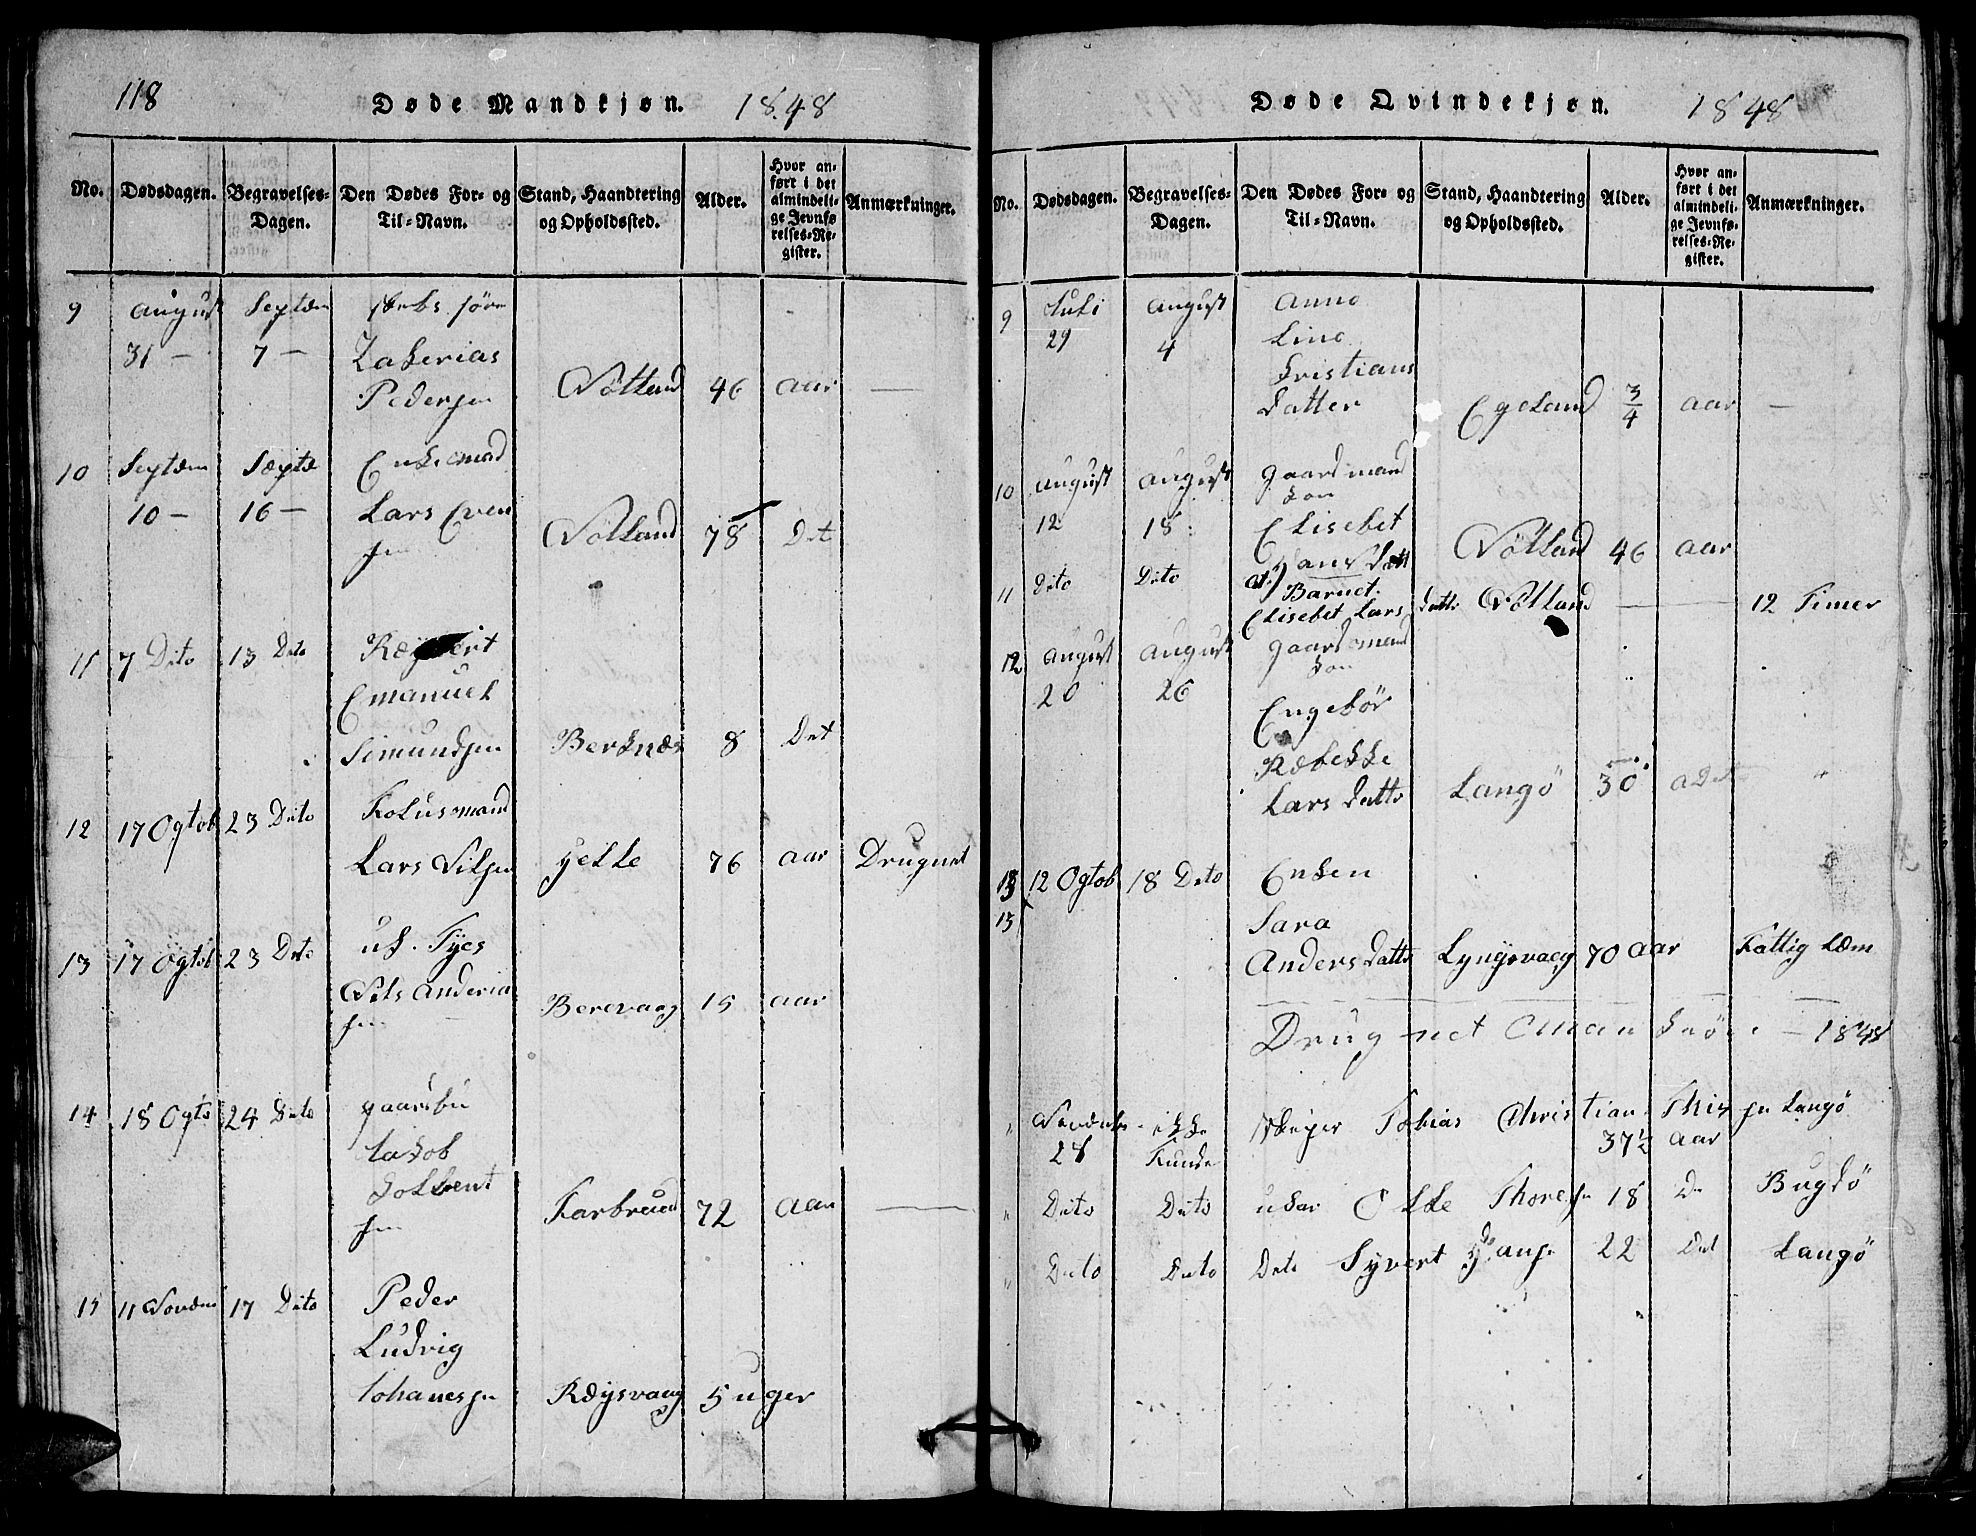 118
Døde Mandkjøn. 1848
No. Dødsdagen. Begravelses-Dagen. Den Dødes For- og Til-Navn. Stand, Haandtering og Opholdssted. Alder. Hvor anført i det almindelige Jevnførelses-Register. Anmærkninger.
9 August Septem
31 — 7 — Zakerias
Pedersen Nötland 46 aar —
10 Septem Septe Enkemand
10 — 16 — Lars Even
sen Nötland 78 Det
11 7 Dito 13 Dito
Emanuel
Simundsen Berknæs 8 Det
12 17 Ogtob 23 Dito
Lars Nilsen Helle 76 aar Drugnet
13 17 Ogtob 23 Dito uk. Tyes
Nils Anderia
sen Berevaag 15 aar
14 18 Ogto 24 Dito
Jakob
sen Farbrued 72 aar —
15 11 Novem 17 Dito Peder
Ludvig
Johanesen Røysvaag 5 uger
Døde Qvindekjøn. 1848
No. Dødsdagen. Begravelses-Dagen. Den Dødes For- og Til-Navn. Stand, Haandtering og Opholdssted. Alder. Hvor anført i det almindelige Jevnførelses-Register. Anmærkninger.
9 Juli August Anne
29 4 Line
Kristians
datter Egeland 3/4 aar —
10 August August gaardmand
kon
12 18 Elisebet
Hans datt Nötland 46 aar
11 Dito Dito Barnet
Elisebet Lars datte Nötland — 12 Timer
12 August August gaardmand
kon
20 26 Engebör
Rebekke
Lars datte Langö 30
13 12 Ogtob 18 Dito Enken
13 Sara
Anders datte Lyngsvaag 70 aar Fattig Lem
Drugnet — 1848
" 28 ikke Funde Skeper Tobias Christian Langö
37 1/2 aar
" Dito Dito Thoresen 18 D
" Dito Dito Dito Syvert 22 Det Langö